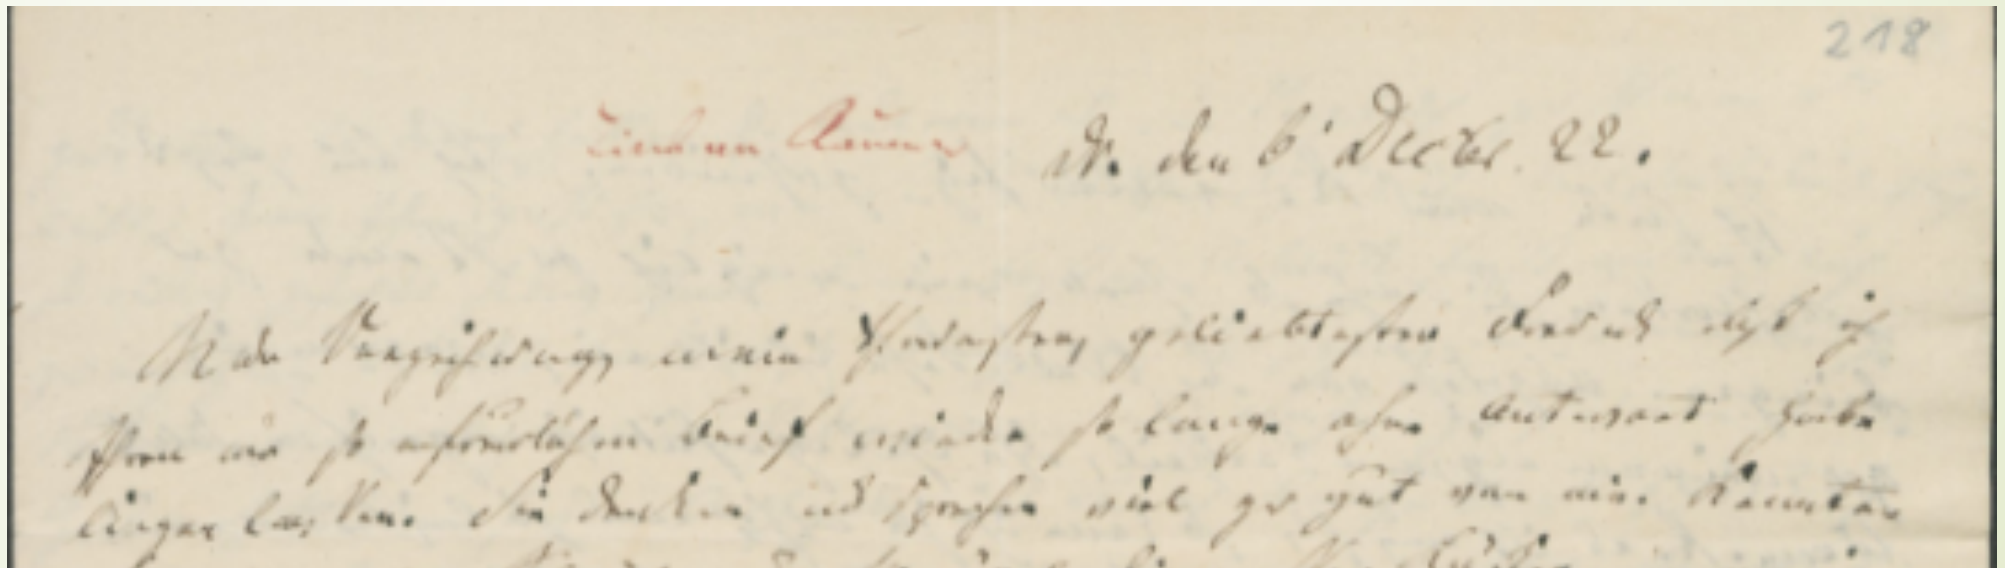 218
Tieck an Raumer
D. den 6' Decbr. 22.
Nur Verzeihung, mein theuerster, geliebtester Freund daß ich
Ihren mir so erfreulichen Brief wieder so lange ohne Antwort habe
liegen lassen. Sie denken und sprechen viel zu gut von mir. Könnten